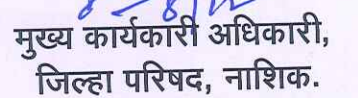 मुख्य कार्यकारी अधिकारी,
जिल्हा परिषद, नाशिक.